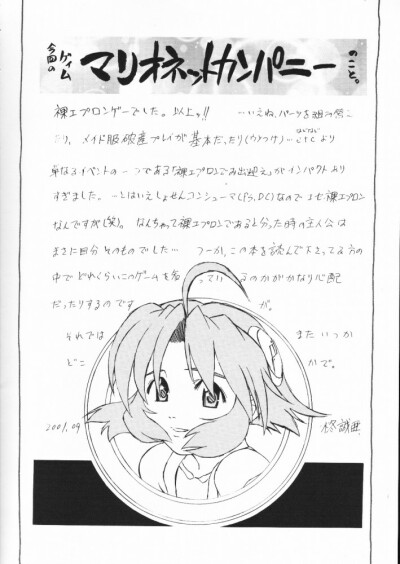 今回の
ゲイム
マリオネットカンパニー
のこと。
裸エプロンゲーでした。以上っ!! …いえね、パーツを
たり、メイド服破産プレイが基本だったり etcより
単なるイベントの一つである「裸エプロンでお出迎え」がインパクトより
すぎました。 …とはいえしょせんコンシューマ(PS,DC)なので 裸エプロン
なんですが(笑)。 なんちゃって裸エプロンであると分った時の主人公は
まさに自分そのものでした… つーか、この本を読んで下さってる方の
中でどれくらいこのゲームを知っているのかがかなり心配
だったりするのですが。
それでは またいつか
どこかで。
2001.09
柊誠亜